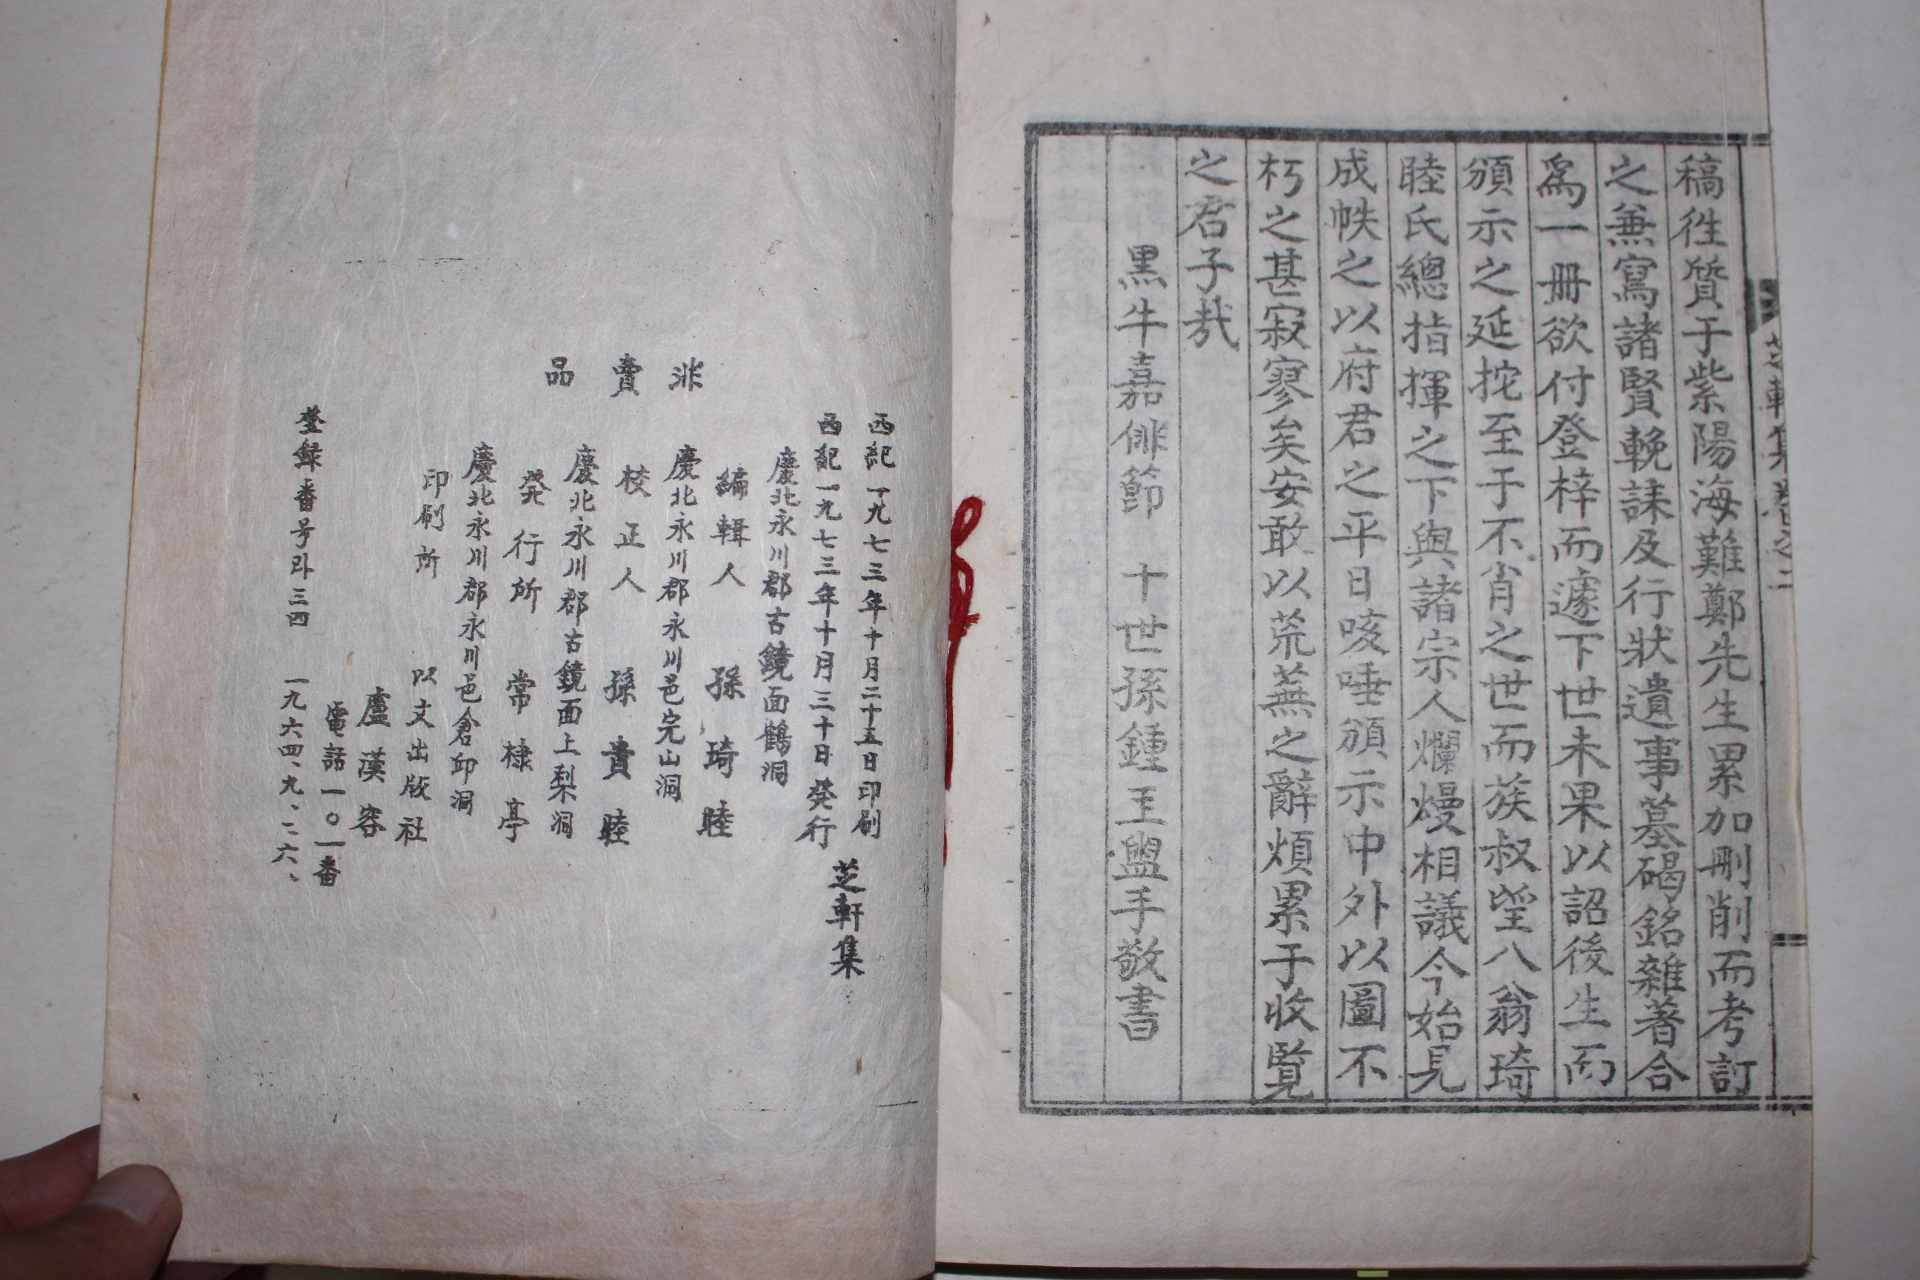 稿徃質于紫陽海難鄭先生累加刪削而考訂
之兼寫諸賢輓誄及行狀遺事墓碣銘雜著合
爲一冊欲付登梓而遽下世未果以詔後生而
頒示之延拕至于不肖之世而蔟叔塋八翁琦
睦氏總指揮之下與諸宗人爛熳相議今始見
成帙之以府君之平日咳唾頒示中外以圖不
朽之甚寂寥矣安敢以荒蕪之辭煩累于收覽
之君子㦲
黒牛嘉俳節 十世孫鍾王盥手敬書
芝軒集卷之二
芝軒集
西紀一九七三年十月二十五日印刷
西紀一九七三年十月三十日發行
慶北永川郡古鏡面鶴洞
編輯人 孫琦睦
慶北永川郡永川邑完山洞
校正人 孫貴睦
慶北永川郡古鏡面上梨洞
發行所 常棣亭
慶北永川郡永川邑倉邱洞
印刷所 以文出版社
盧漢容
電話一〇一番
登録番号라三四 一九六四、九、二六、
非賣品